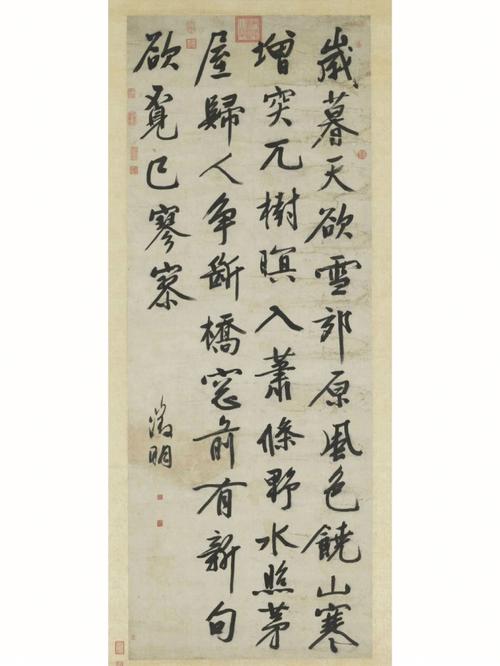 歲暮天欲雪郊原風色饒山寒
增突兀樹暝入蕭條野水照茅
屋歸人爭斷橋窓前有新句
欲覔已寥寥
徵明